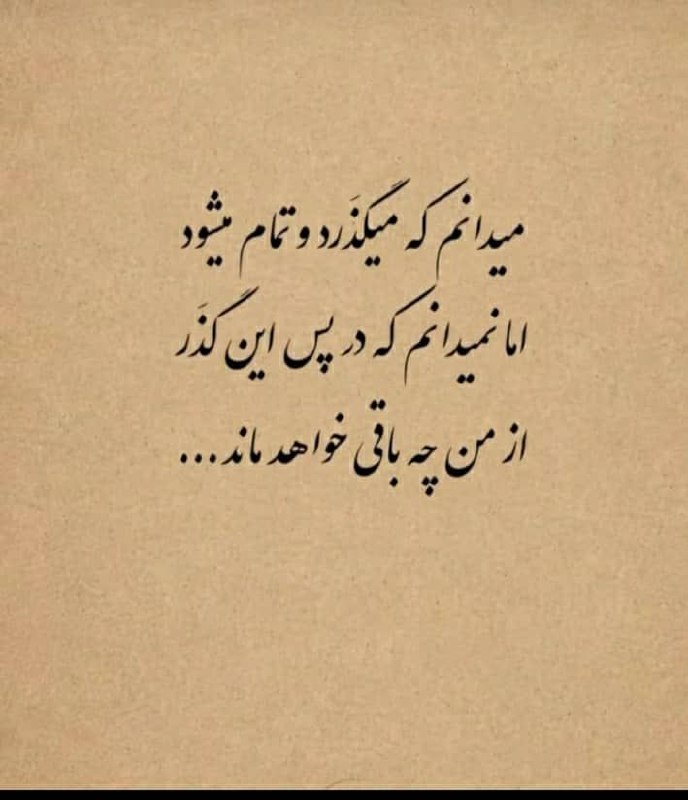 میدانم که میگذَرد و تمام میشود
اما نمیدانم که در پس این گذَر
از من چه باقی خواهد ماند...